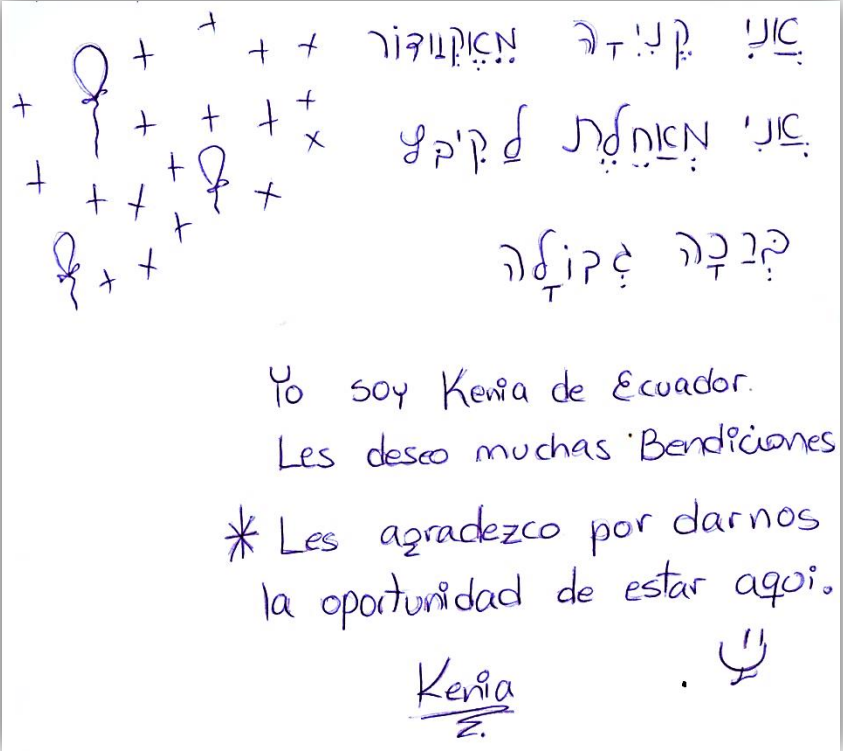 אֲנִי קֶנִידָה מֵאֶקְוָדּוֹר
אֲנִי מְאַחֶלֶת לַקִיבּץ
בְּרָכָה גְדוֹלָה
Yo soy Kenia de Ecuador.
Les deseo muchas Bendiciones
* Les agradezco por darnos
la oportunidad de estar aqui.
Kenia
Z.